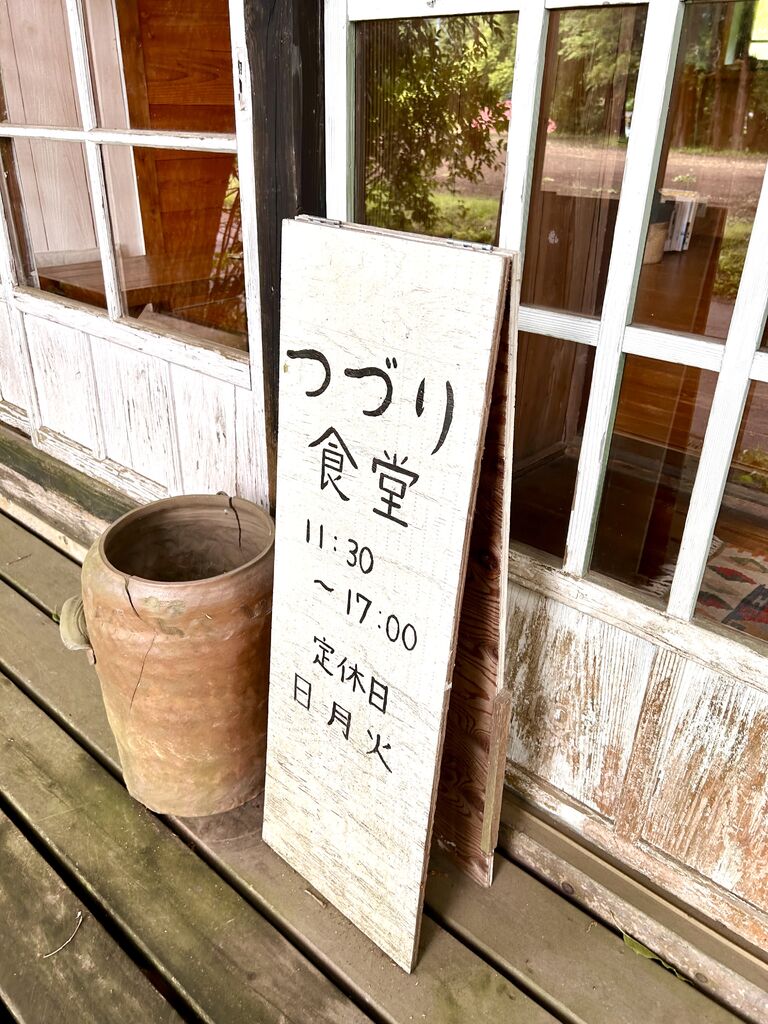 つづり
食堂
11:30
～17:00
定休日
日月火